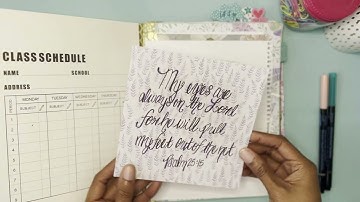 CLASS SCHEDULE
NAME SCHOOL
ADDRESS
MONDAY TUESDAY WEDNESDAY THURSDAY
SUBJECT SUBJECT SUBJECT SUBJECT
My eyes are
always on the Lord
for he will pull
my feet out of the net
Psalm 25:15